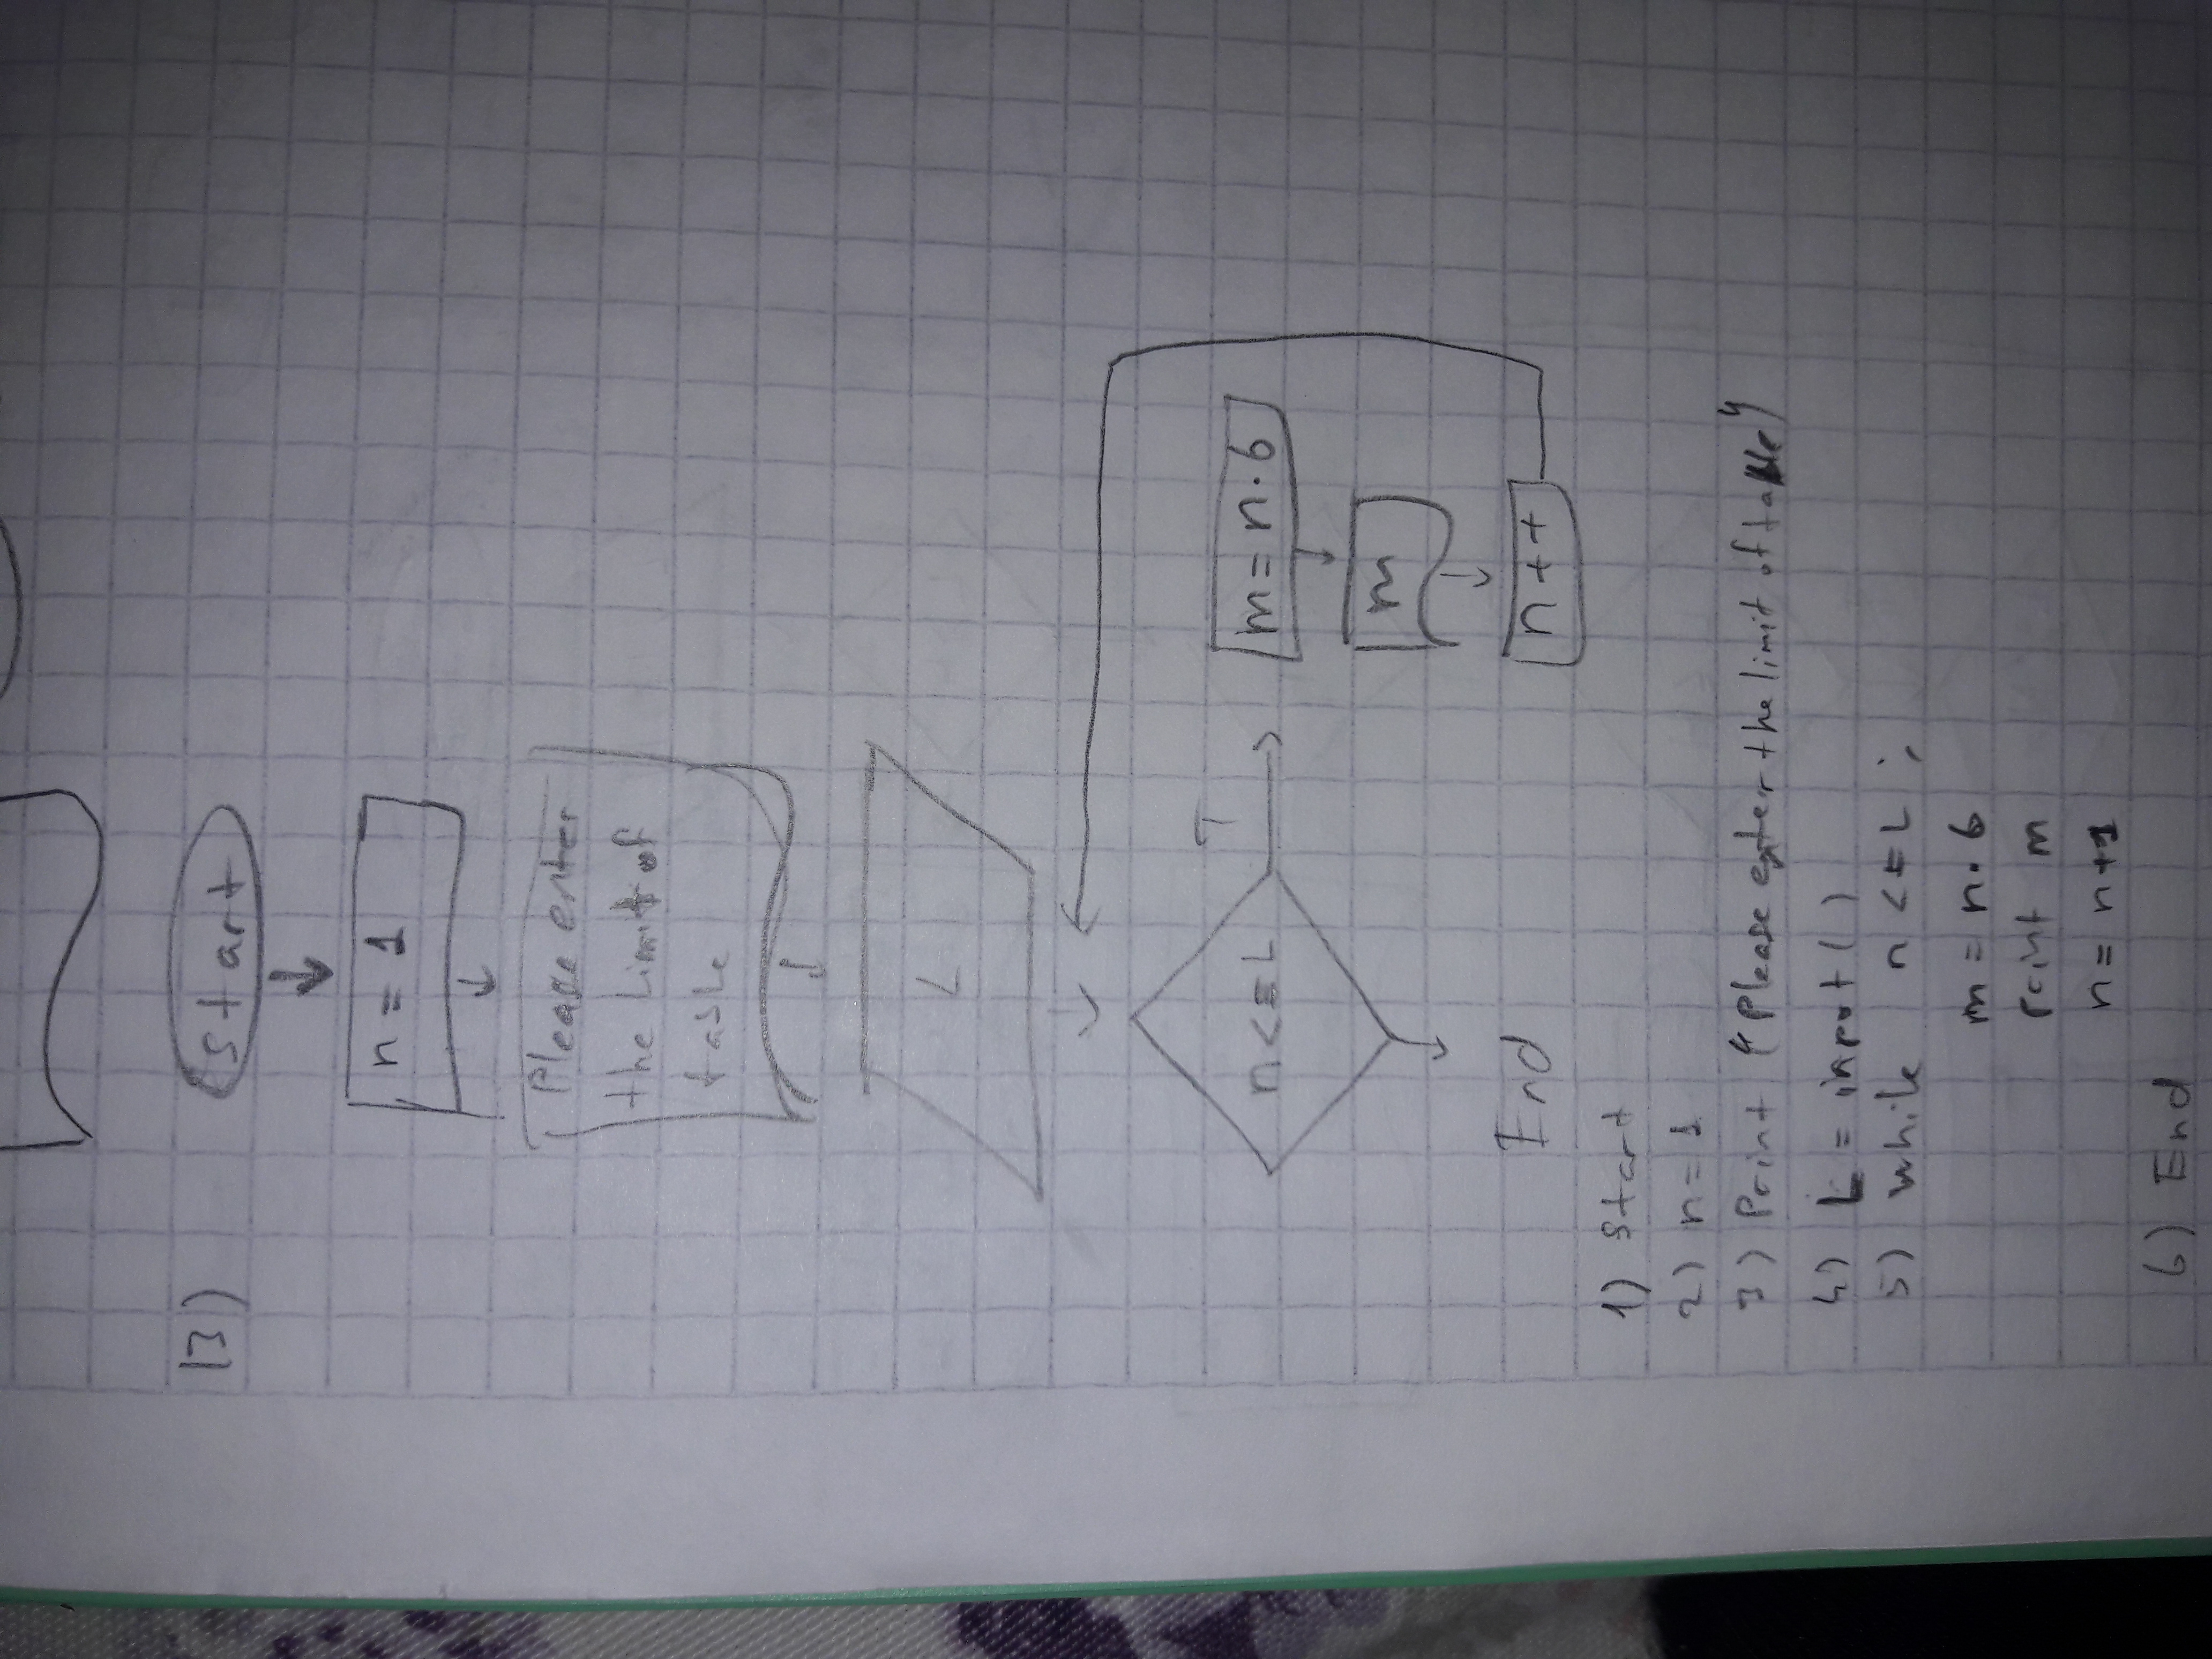 13)
start
n = 1
Please enter
the limit of
table
L
n <= L
T
m = n.6
m
n++
End
1) Start
2) n = 1
3) Print "Please enter the limit of table"
4) L = input ( )
5) while n <= L ;
m = n. 6
print m
n = n+1
6) End